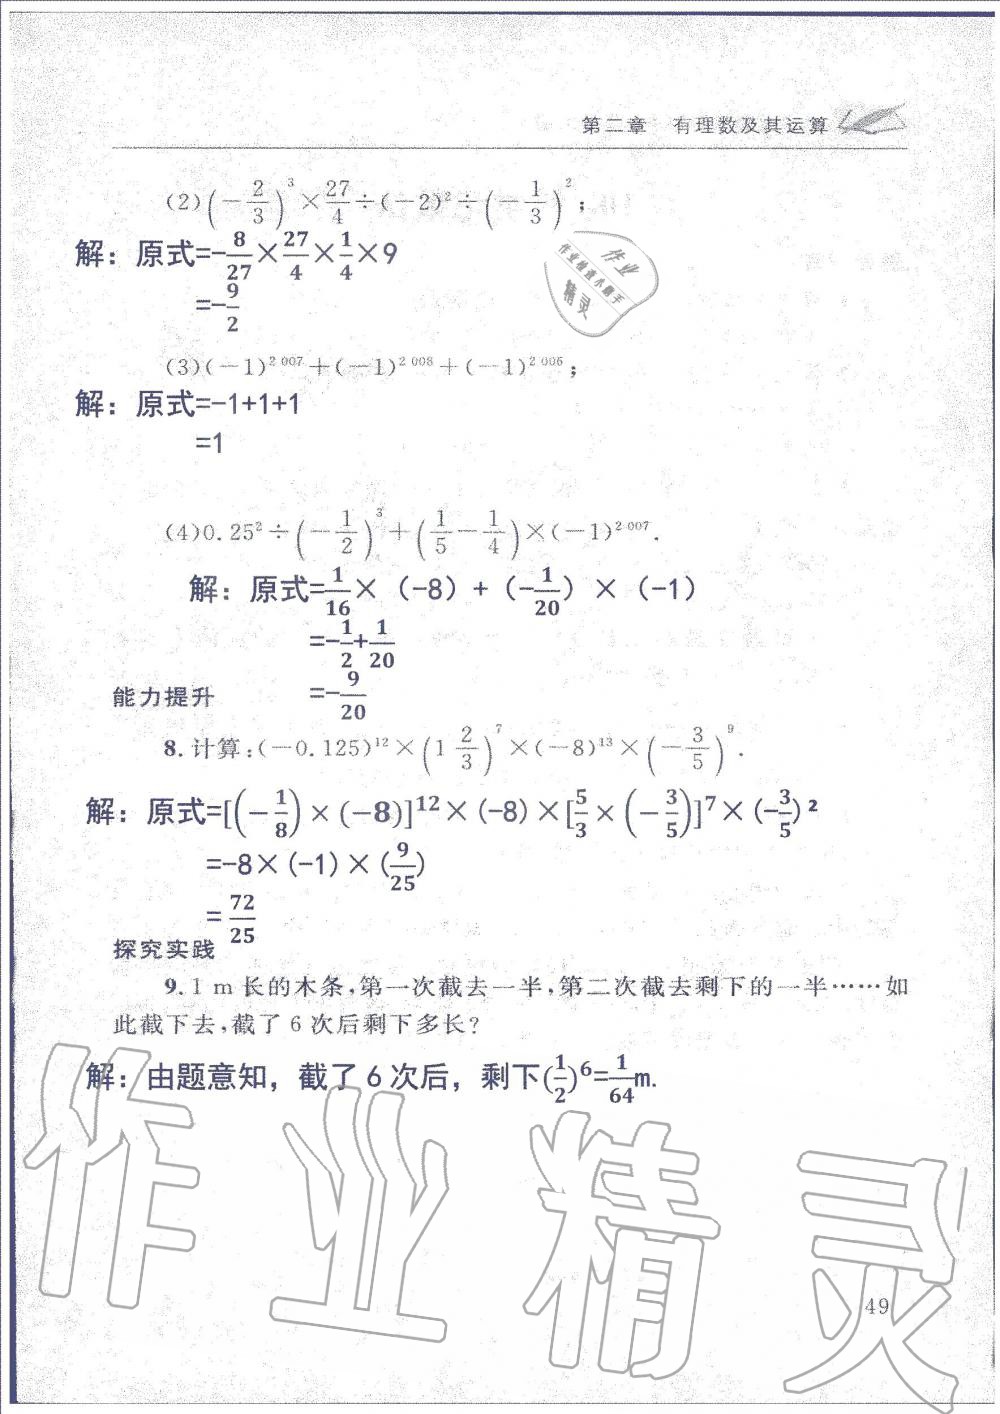 第二章 有理数及其运算
(2)(-2/3)³×27/4÷(-2)²÷(-1/3)²;
解：原式=-8/27×27/4×1/4×9
=-9/2
作业
作业检查小帮手
精灵
(3)(-1)²⁰⁰⁷+(-1)²⁰⁰⁸+(-1)²⁰⁰⁶;
解：原式=-1+1+1
=1
(4)0.25²÷(-1/2)³+(1/5-1/4)×(-1)²⁰⁰⁷.
解：原式=1/16×（-8）+（-1/20）×（-1）
=-1/2+1/20
=-9/20
能力提升
8.计算:(-0.125)¹²×(1 2/3)⁷×(-8)¹³×(-3/5)⁹.
解：原式=[(-1/8)×(-8)]¹²×(-8)×[5/3×(-3/5)]⁷×(-3/5)²
=-8×(-1)×(9/25)
=72/25
探究实践
9.1 m长的木条,第一次截去一半,第二次截去剩下的一半……如
此截下去,截了6次后剩下多长?
解：由题意知，截了6次后，剩下(1/2)⁶=1/64m.
作业精灵
49